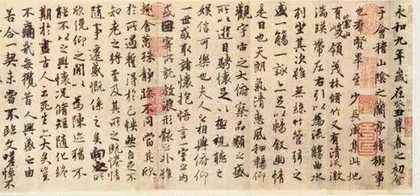 永和九年歲在癸丑暮春之初會
于會稽山陰之蘭亭脩稧事
也群賢畢至少長咸集此地
有崇山峻領茂林脩竹又有清流激
湍暎帶左右引以為流觴曲水
列坐其次雖無絲竹管弦之
盛一觴一詠亦足以暢敘幽情
是日也天朗氣清惠風和暢仰
觀宇宙之大俯察品類之盛
所以遊目騁懷足以極視聽之
娛信可樂也夫人之相與俯仰
一世或取諸懷抱悟言一室之內
或因寄所託放浪形骸之外雖
趣舍萬殊靜躁不同當其欣
於所遇蹔得於己怏然自足不
知老之將至及其所之既惓情
隨事遷感慨係之矣向之所
欣俛仰之間以為陳跡猶不
能不以之興懷況脩短隨化終
期於盡古人云死生亦大矣豈
不痛哉每攬昔人興感之由
若合一契未嘗不臨文嗟悼不